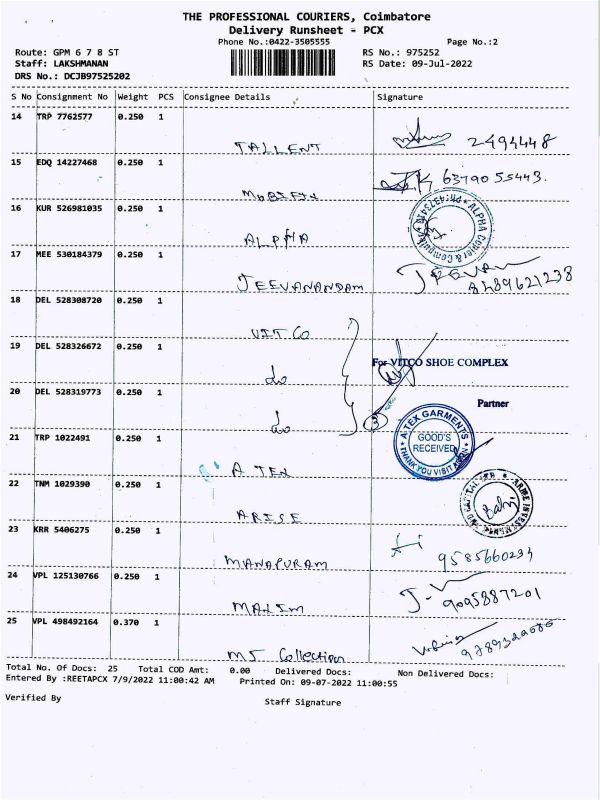 THE PROFESSIONAL COURIERS, Coimbatore
Delivery Runsheet - PCX
Phone No.:0422-3505555 Page No.:2
Route: GPM 6 7 8 ST RS No.: 975252
Staff: LAKSHMANAN RS Date: 09-Jul-2022
DRS No.: DCJB97525202
S No Consignment No Weight PCS Consignee Details Signature
14 TRP 7762577 0.250 1
TALLENT 2494448
15 EDQ 14227468 0.250 1
MOBIFIX 6379055443.
16 KUR 526981035 0.250 1
ALPHA
17 MEE 530184379 0.250 1
JEEVANANDAM JEEVAN 8489621238
18 DEL 528308720 0.250 1
VITCO
19 DEL 528326672 0.250 1
For VITCO SHOE COMPLEX
do
20 DEL 528319773 0.250 1
Partner
do 3
21 TRP 1022491 0.250 1
A TEX GARMENTS
GOOD'S
RECEIVED
THANK YOU VISIT AGAIN
A TEX
22 TNM 1029390 0.250 1
ARISE
23 KRR 5406275 0.250 1
MANAPURAM 9585660234
24 VPL 125130766 0.250 1
MALIM 9095887201
25 VPL 498492164 0.370 1
MJ Collection
Total No. Of Docs: 25 Total COD Amt: 0.00 Delivered Docs: Non Delivered Docs:
Entered By :REETAPCX 7/9/2022 11:00:42 AM Printed On: 09-07-2022 11:00:55
Verified By Staff Signature